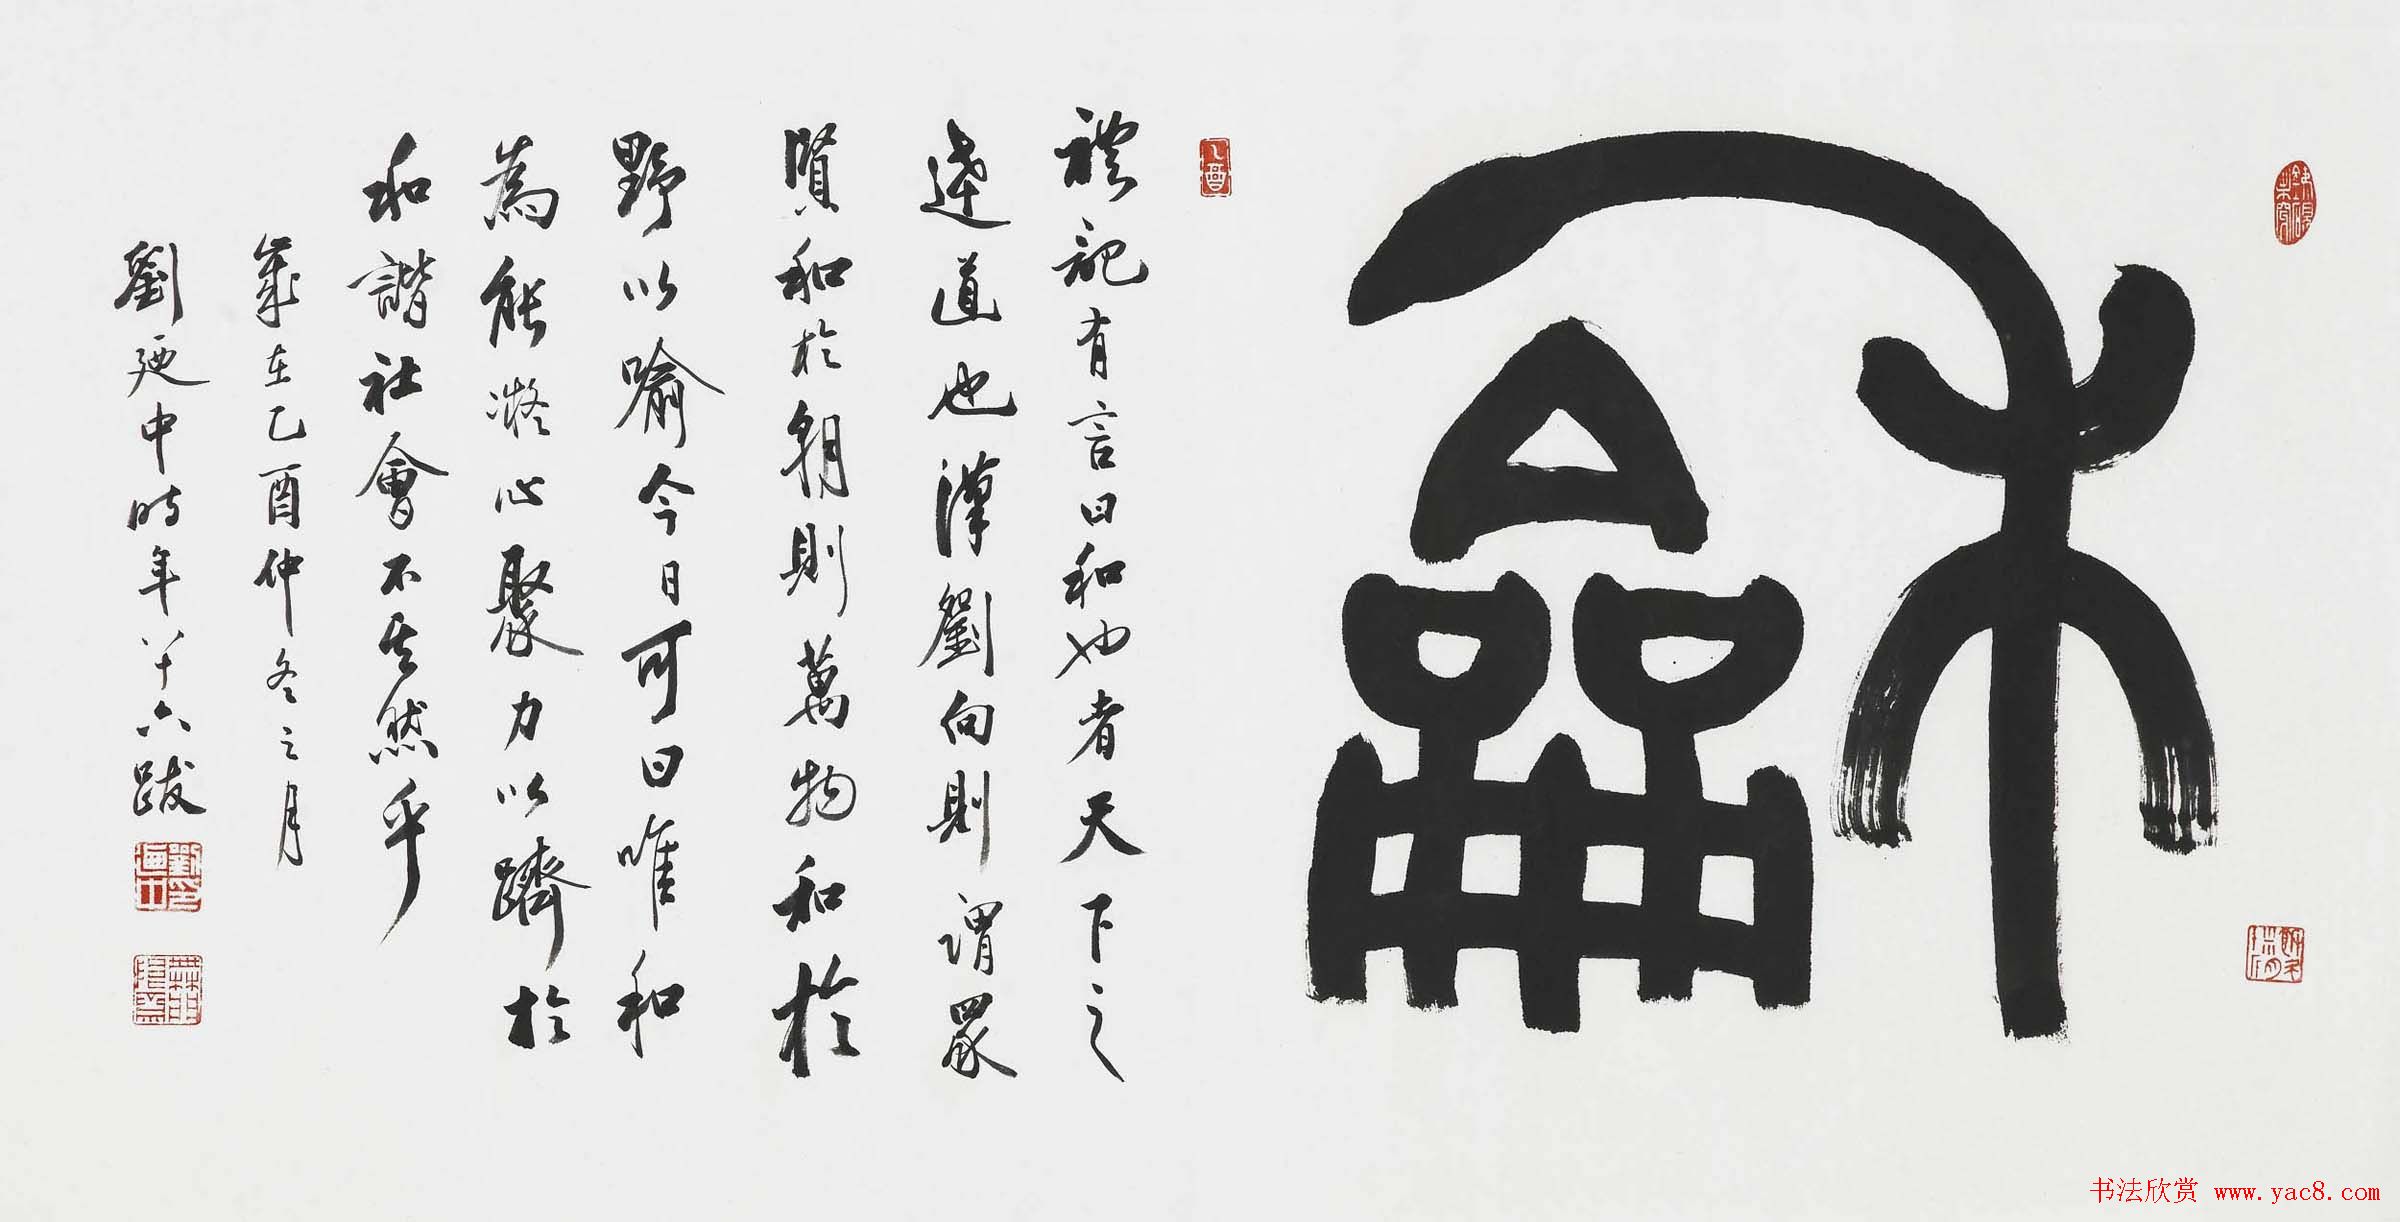 龢
禮記有言曰和也者天下之
達道也漢劉向則謂眾
賢和於朝則萬物和於
野以喻今日可曰唯和
為能凝心聚力以躋於
和諧社會不其然乎
歲在乙酉仲冬之月
劉廼中時年八十六跋
书法欣赏 www.yac8.com